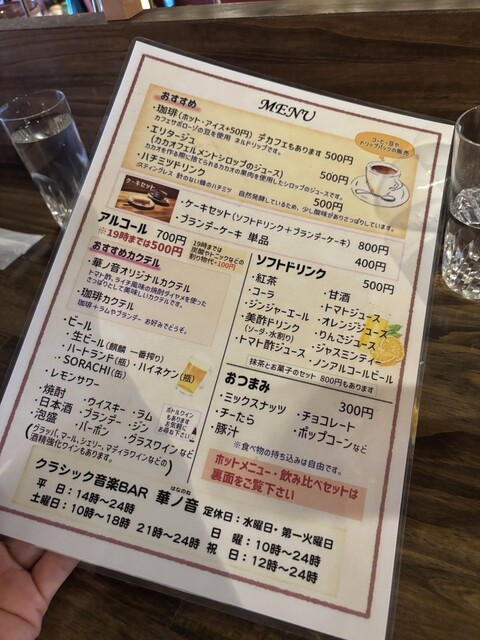 MENU
おすすめ
・珈琲(ホット・アイス+50円) デカフェもあります 500円
カフェサボローゾの豆を使用 ネルドリップです。
・エリタージュ
(カカオフェルメントシロップのジュース) 500円
カカオを作る際に捨てられるカカオの果肉を使用したシロップのジュースです。
・ハチミツドリンク 500円
スティングレス 針のない蜂のハチミツ 自然発酵しているため、少し酸味がありさっぱりしています。
コーヒー豆や
ドリップパックの販売
ケーキセット
・ケーキセット(ソフトドリンク+ブランデーケーキ) 800円
・ブランデーケーキ 単品 400円
アルコール 700円
※19時までは500円
19時までは
炭酸やトニックなどの
割り物代+100円
おすすめカクテル
・華ノ音オリジナルカクテル
トマト酢、ライチ風味の焼酎ダイヤメを使った
さっぱりとして美味しいカクテルです。
・珈琲カクテル
珈琲+ラムやブランデー お好みでどうぞ。
・ビール
・生ビール(麒麟 一番搾り)
・ハートランド(瓶)・ハイネケン(瓶)
・SORACHI(缶)
・レモンサワー
・焼酎 ・ウイスキー・ラム
・日本酒 ・ブランデー・ジン
・泡盛 ・バーボン ・グラスワインなど
(グラッパ、マール、シェリー、マディラワインなどの
酒精強化ワインもあります。)
ボトルワイン
もあります
お気軽に
お尋ね下さい。
ソフトドリンク 500円
・紅茶 ・甘酒
・コーラ ・トマトジュース
・ジンジャーエール ・オレンジジュース
・美酢ドリンク ・りんごジュース
(ソーダ・水割り) ・ジャスミンティ
・トマト酢ジュース ・ノンアルコールビール
抹茶とお菓子のセット 800円もあります
おつまみ 300円
・ミックスナッツ ・チョコレート
・チーたら ・ポップコーンなど
・豚汁
※食べ物の持ち込みは自由です。
ホットメニュー・飲み比べセットは
裏面をご覧下さい
クラシック音楽BAR 華ノ音 定休日:水曜日・第一火曜日
はなのね
平 日:14時～24時 日 曜:10時～24時
土曜日:10時～18時 21時～24時 祝 日:12時～24時